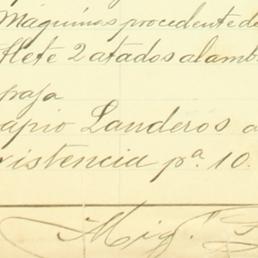 Máquinas procedente de
flete 2 atados alamb
paja
apio Landeros a
xistencia pª 10.
Mig.